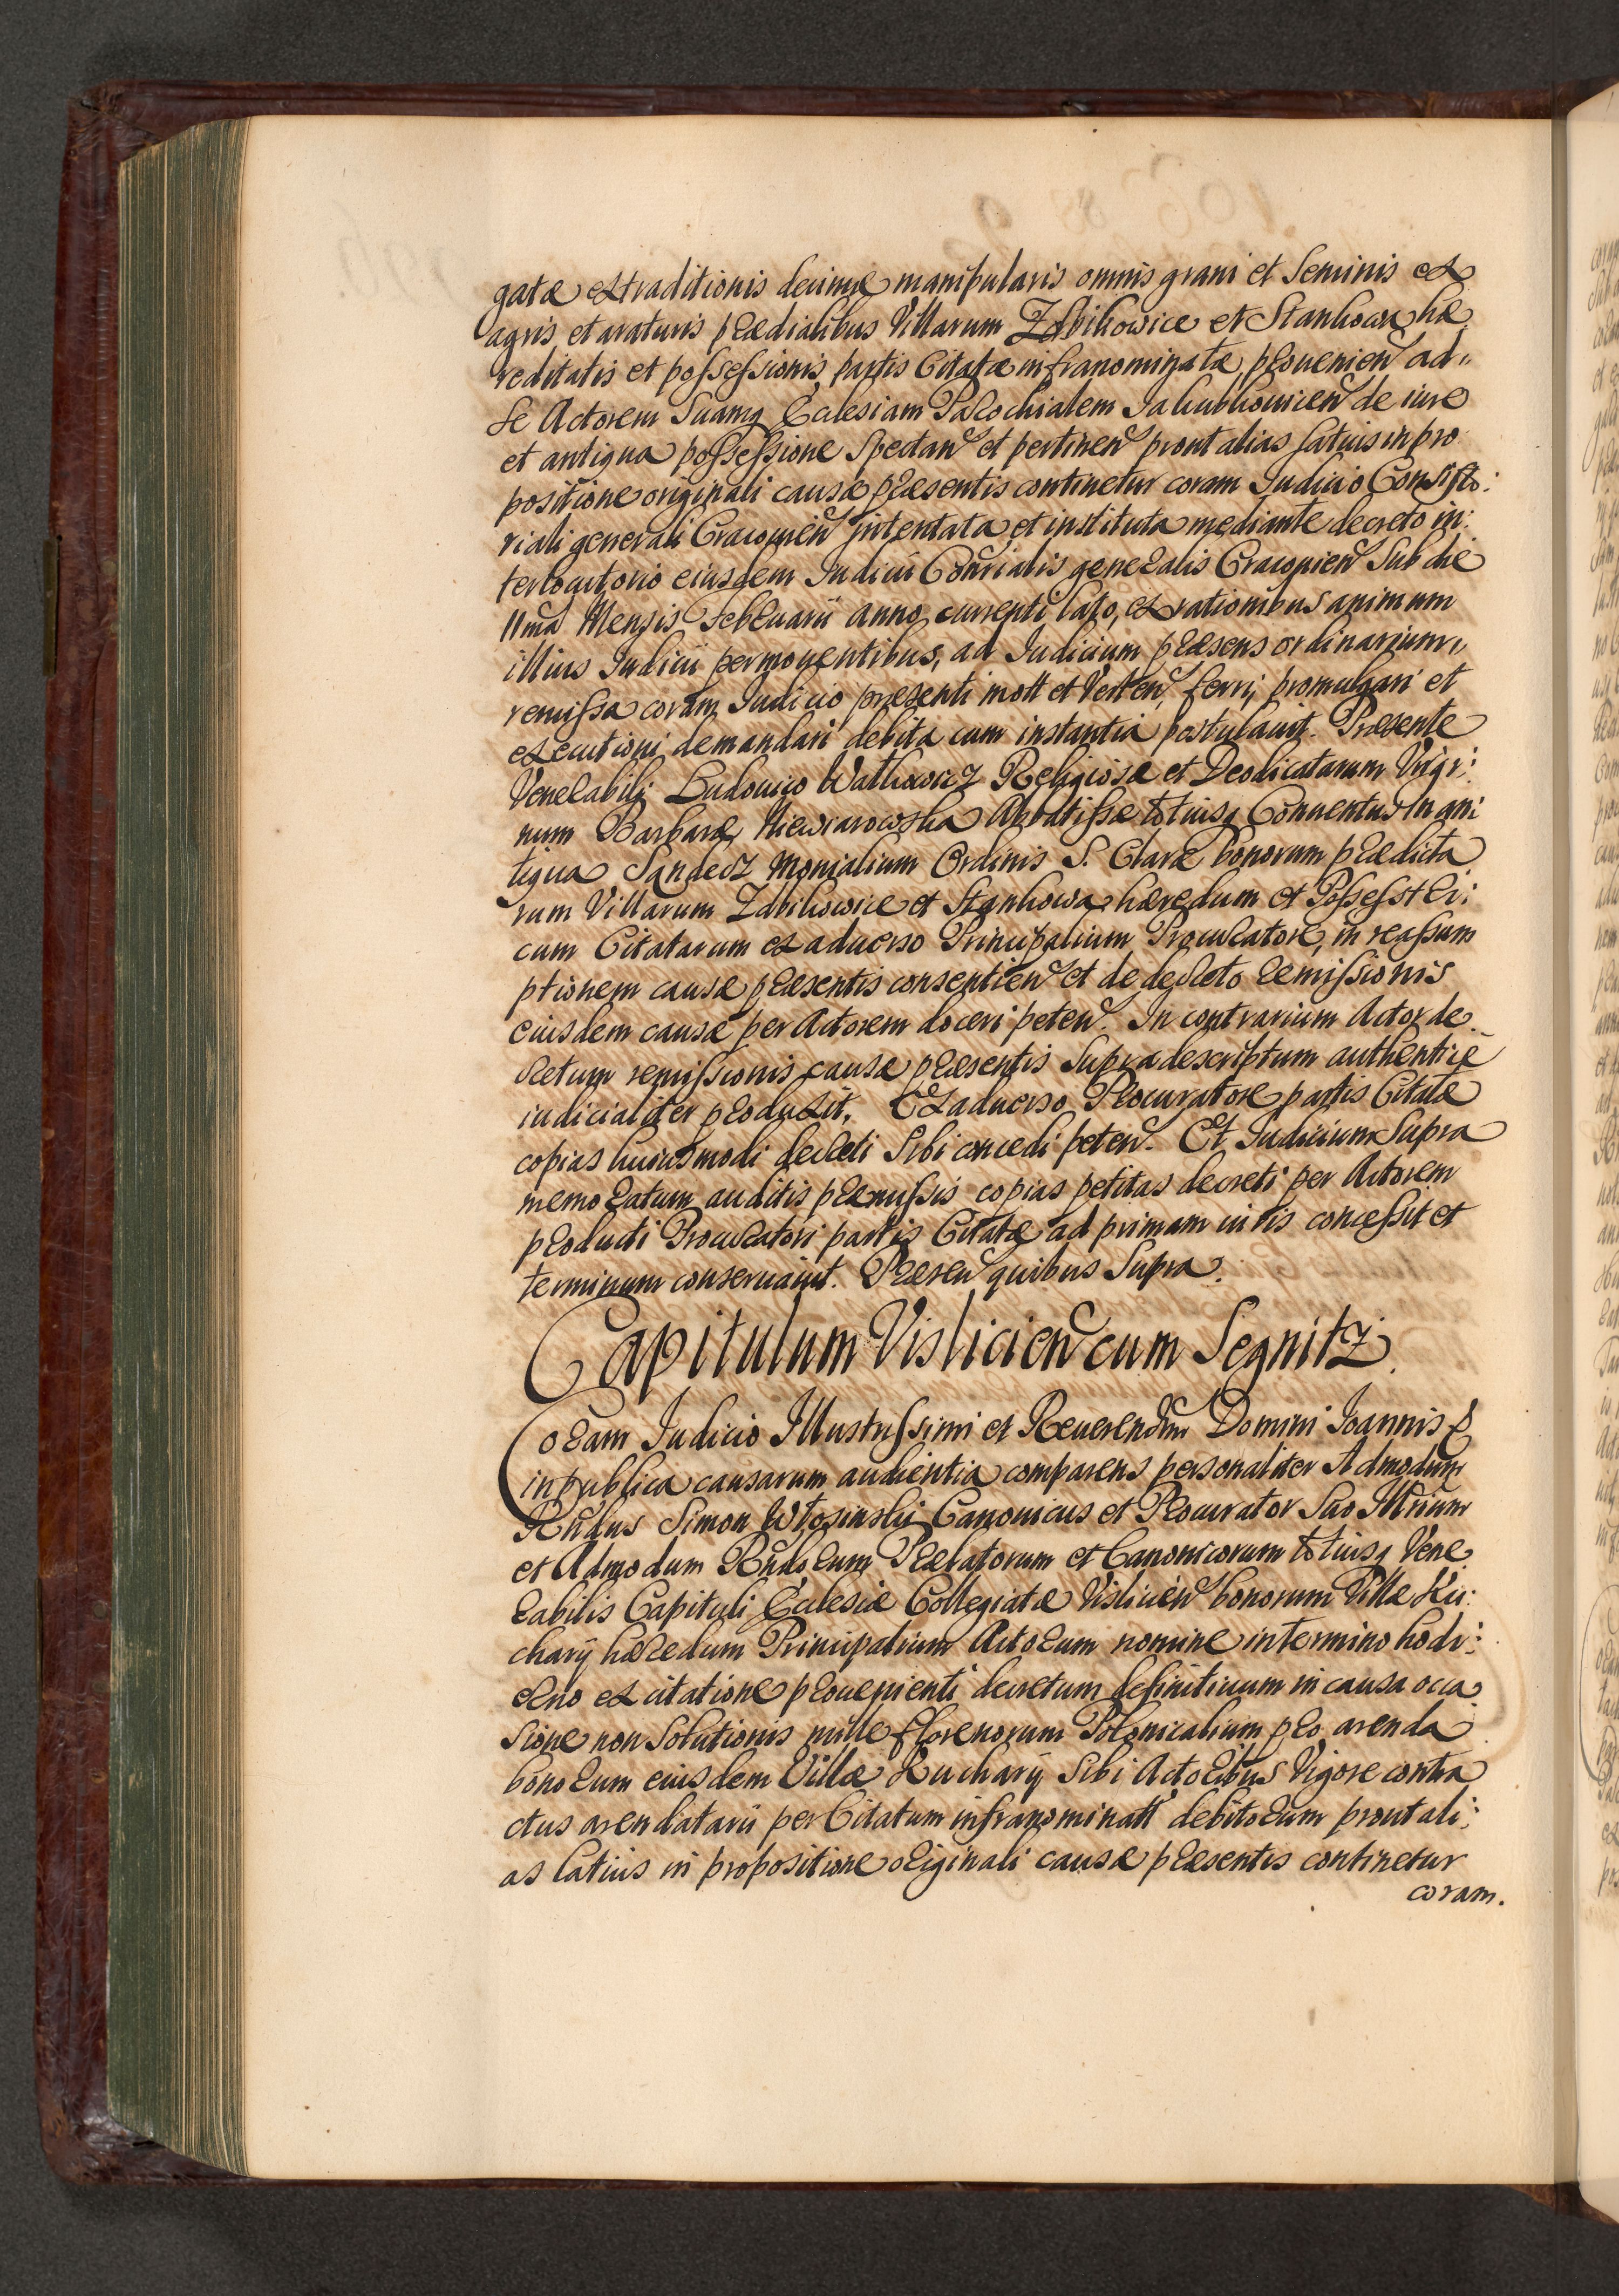 gatæ extraditionis decimæ manipularis omnis grani et Seminis ex
agris et araturis prædialibus Villarum Zbikowice et Stankowa hæ
reditatis et possessionis partis Citatæ infranominatæ prouenien ad„
se Actorem Suamq Ecclesiam Parochialem Jakubkouicen de iure
et antiqua possessione Spectan et pertinen prout alias latius in pro
positione originali causæ præsentis continetur coram Iudicio Consisto:
riali generali Cracouien intentata et instituta mediante decreto in:
terlocutorio eiusdem Iudicii Conrialis generalis Cracouien Sub die
11ma Mensis Februarii anno currenti lato, ex rationibus animum
illius Iudicii permouentibus, ad Iudicium præsens ordinarium,
remissa coram Iudicio præsenti mott et Verten, ferri, promulgari et
executioni demandari debita cum instantia postulauit. Præsente
Venerabili Ludouico Walkowicz Religiosæ et Deodicatarum Virgi:
num Barbaræ Niewiarowska Abbatissæ totiusq Conuentus in an:
tiqua Sandecz Monialium Ordinis S. Claræ bonorum prædicta
rum Villarum Zbikowice et Stankowa hæredum et Possesstri:
cum Citatarum ex aduerso Principalium Procuratore, in reassum
ptionem causæ præsentis consentien et de decreto remissionis
eiusdem causæ per Actorem doceri peten. In contrarium Actor de
cretum remissionis causæ præsentis Supradescriptum authentice
iudicialiter produxit. Ex aduerso Procuratore partis Citatæ
copias huiusmodi decreti Sibi concedi peten. Et Iudicium Supra
memoratum auditis præmissis copias petitas decreti per Actorem
producti Procuratori partis Citatæ ad primam iuris concessit et
terminum conseruauit. Præsen quibus Supra.
Capitulum Vislicien cum Segnitz.
Coram Iudicio Illustrissimi et Reuerendmi Domini Ioannis &
in publica causarum audientia comparens personaliter Admodum
Rndus Simon Wtosinskij Canonicus et Procurator Suo Illrium
et Admodum Rndorum Prælatorum et Canonicorum totiusq Vene
rabilis Capituli Ecclesiæ Collegiatæ Vislicien bonorum Villæ Ku:
charÿ hæredum Principalium Actorum nomine in termino hodi:
erno ex citatione prouenienti decretum definitiuum in causa occa
sione non Solutionis mille florenorum Polonicalium pro arenda
bonorum eiusdem Villæ Kucharÿ Sibi Actoribus Vigore contra
ctus arendatarii per Citatum infranominatt debitorum prout ali:
as latius in propositione originali causæ præsentis continetur
coram.